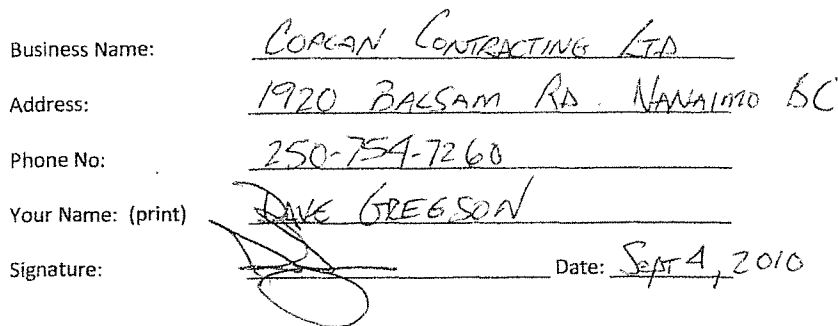 Business Name: COPCAN CONTRACTING LTD
Address: 1920 BALSAM RD. NANAIMO BC
Phone No: 250-754-7260
Your Name: (print) DAVE GREGSON
Signature: Date: Sept 4, 2010